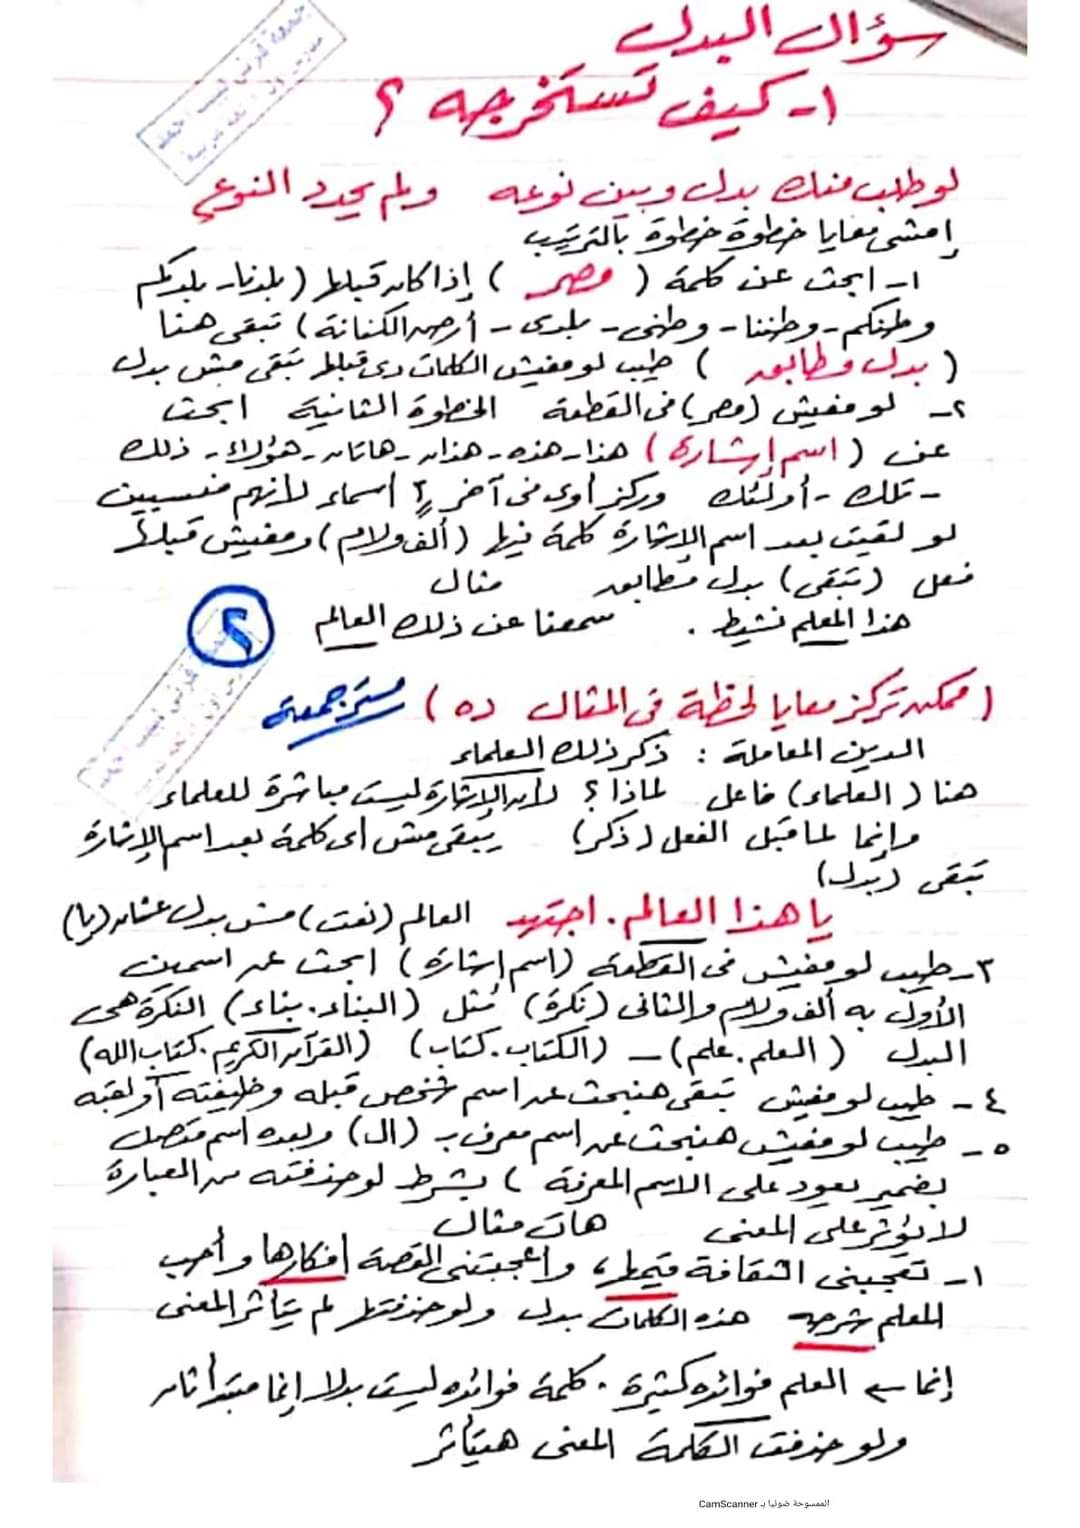 سؤال البدل
١- كيف تستخرجه ؟
لو طلب منك بدل وبين نوعه ولم يحدد النوع
إمشى معايا خطوة خطوة بالترتيب
١- ابحث عن كلمة ( مصر ) إذا كان قبلها (بلدنا - بلدكم
وطنكم - وطننا - وطنى - بلدى - أرض الكنانة) تبقى هنا
( بدل مطابق ) طيب لو مفيش الكلمات دى قبلها تبقى مش بدل
٢- لو مفيش (مصر) فى القطعة الخطوة الثانية ابحث
عن ( اسم إشارة ) هذا - هذه - هذان - هاتان - هؤلاء - ذلك
- تلك - أولئك وركز أوى فى آخر ٣ أسماء لأنهم منسيين
لو لقيت بعد اسم الإشارة كلمة فيها (ألف ولام) ومفيش قبلها
فعل (تبقى) بدل مطابق مثال
هذا المعلم نشيط . سمعنا عن ذلك العالم
٢
(ممكن تركز معايا لحظة فى المثال ده )
الدين المعاملة : ذكر ذلك العلماء
هنا ( العلماء) فاعل لماذا ؟ لأن الإشارة ليست مباشرة للعلماء
وإنما لما قبل الفعل (ذكر) يبقى مش أى كلمة بعد اسم الإشارة
تبقى (بدل)
يا هذا العالم . اجتهد العالم (نعت) مش بدل عشان (يا)
٣- طيب لو مفيش فى القطعة (اسم إشارة) ابحث عن اسمين
الأول به ألف ولام والثانى (نكرة) مثل (البناء . بناء) النكرة هى
البدل ( العلم . علم) - (الكتاب . كتاب) (القرآن الكريم . كتاب الله)
٤- طيب لو مفيش تبقى هنبحث عن اسم شخص قبله وظيفته أو لقبه
٥- طيب لو مفيش هنبحث عن اسم معرف بـ (ال) وبعده اسم متصل
بضمير يعود على الاسم المعرفة ) بشرط لو حذفته من العبارة
لا يؤثر على المعنى هات مثال
١- تعجبنى الثقافة قيمها، وأعجبتنى القصة أفكارها وأحب
المعلم شرحه هذه الكلمات بدل ولو حذفتها لم يتأثر المعنى
إنما ← المعلم فوائده كثيرة . كلمة فوائده ليست بدلا إنما مبتدأ ثان
ولو حذفت الكلمة المعنى هيتأثر
الممسوحة ضوئيا بـ CamScanner